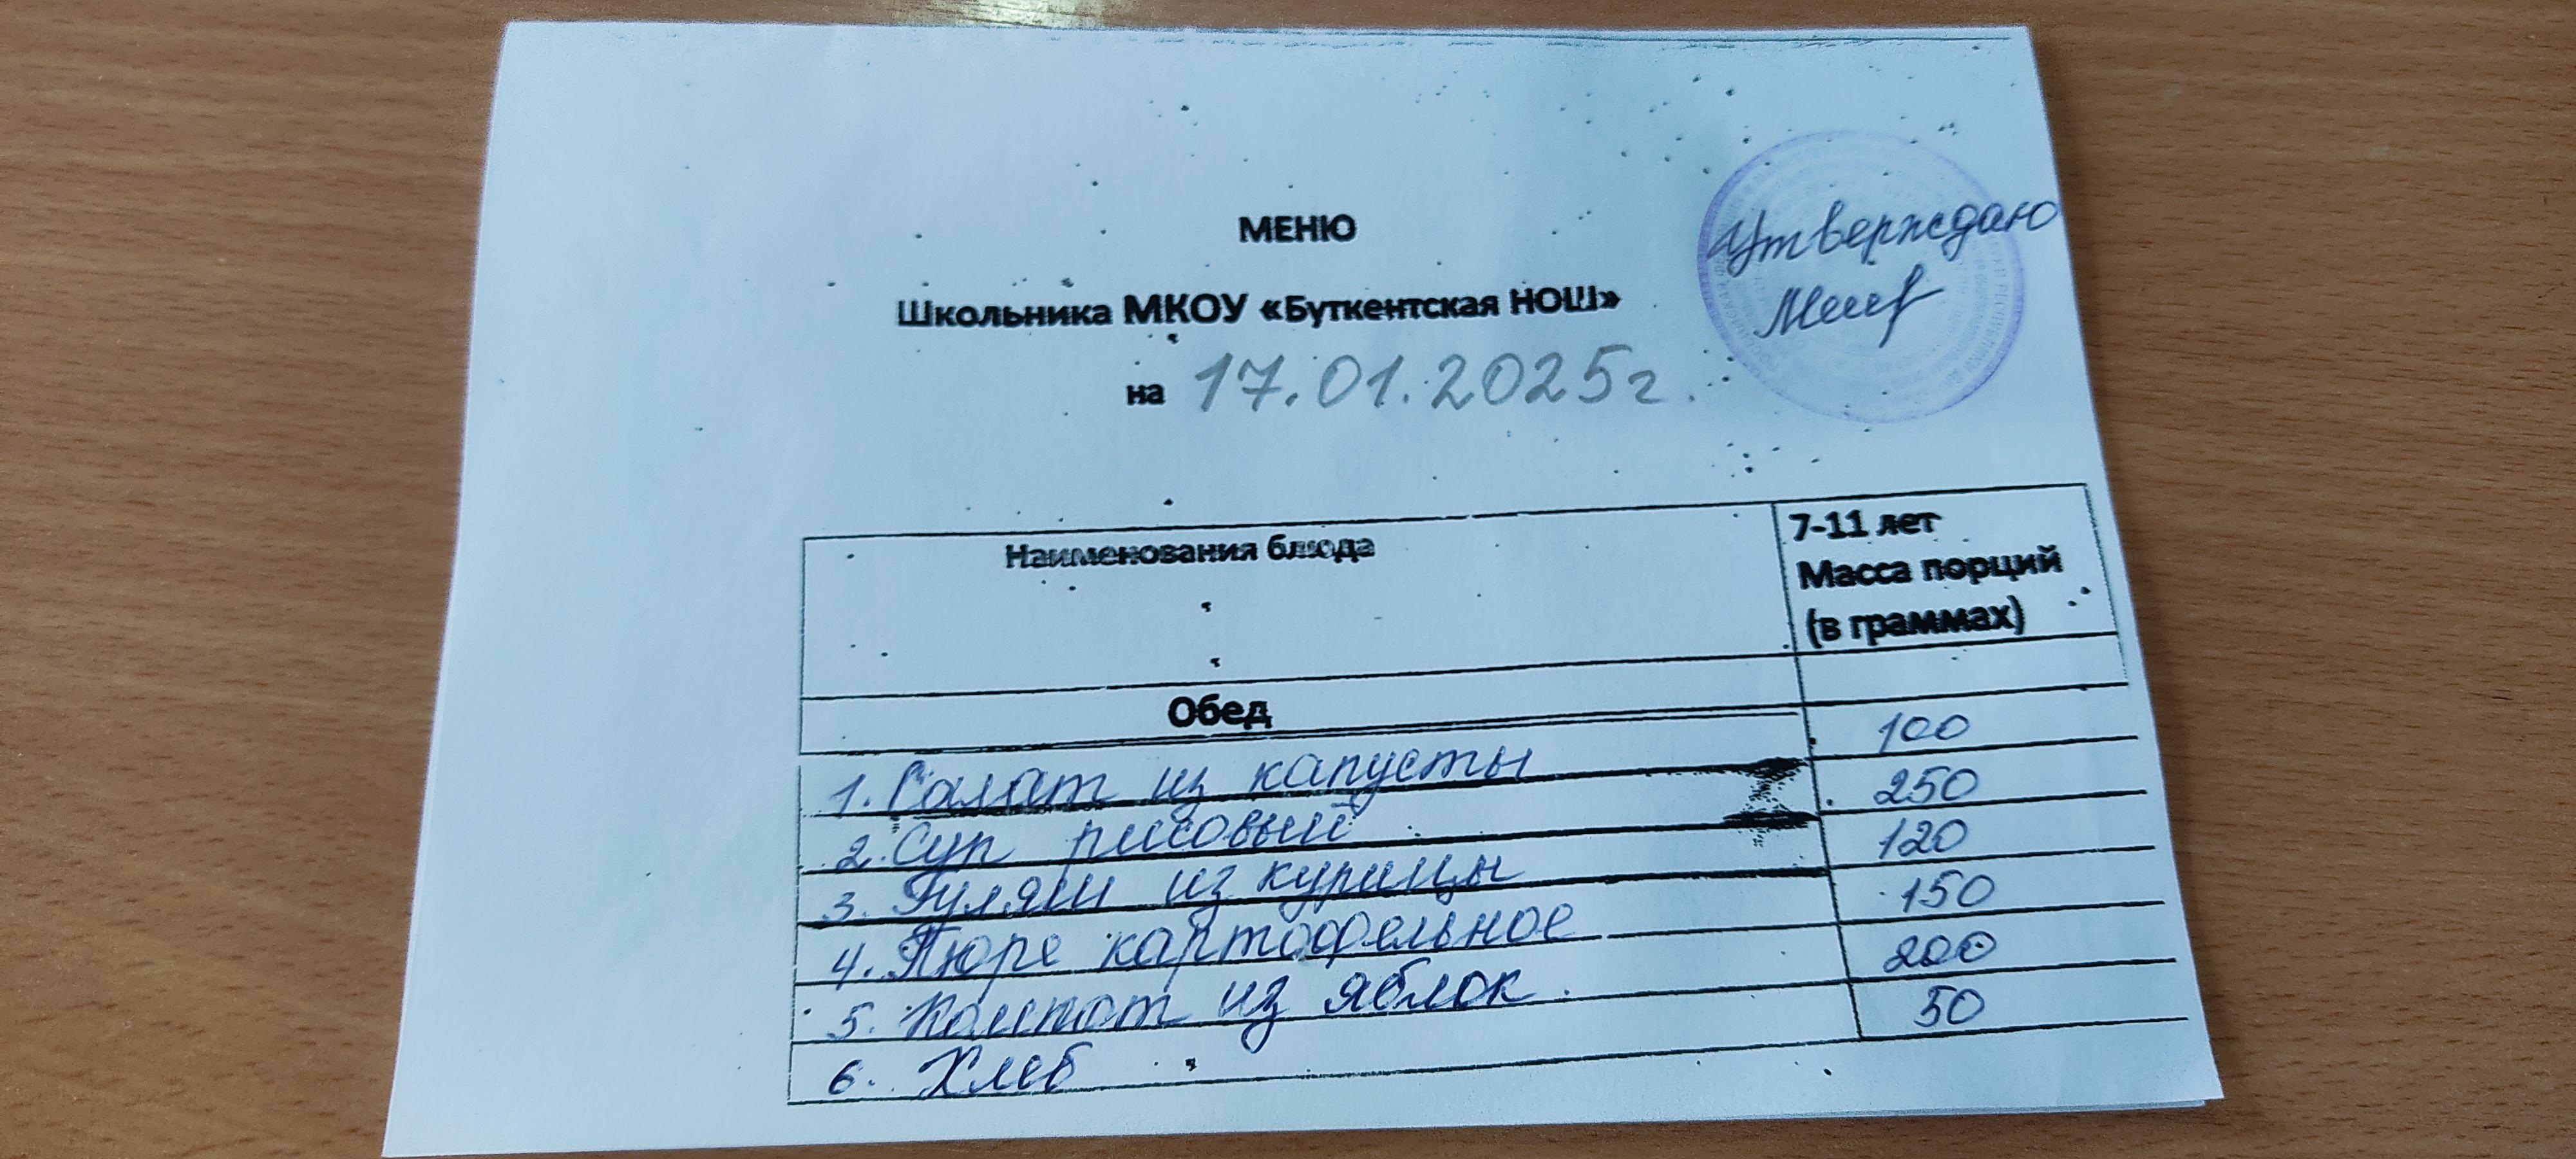 МЕНЮ
Утверждаю
Школьника МКОУ «Буткентская НОШ»
на 17.01.2025г.
Наименования блюда
7-11 лет
Масса порций
(в граммах)
Обед
1. Салат из капусты 100
2. Суп рисовый 250
3. Гуляш из курицы 120
4. Пюре картофельное 150
5. Компот из яблок. 200
6. Хлеб 50